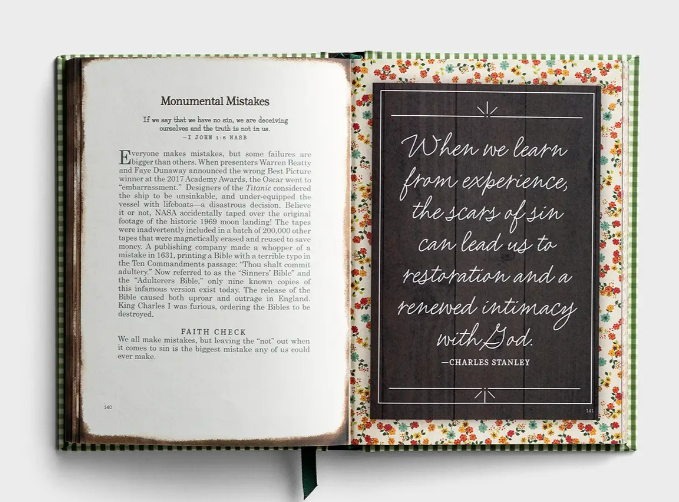 Monumental Mistakes
If we say that we have no sin, we are deceiving
ourselves and the truth is not in us.
—I JOHN 1:8 NASB
Everyone makes mistakes, but some failures are
bigger than others. When presenters Warren Beatty
and Faye Dunaway announced the wrong Best Picture
winner at the 2017 Academy Awards, the Oscar went to
“embarrassment.” Designers of the Titanic considered
the ship to be unsinkable, and under-equipped the
vessel with lifeboats—a disastrous decision. Believe
it or not, NASA accidentally taped over the original
footage of the historic 1969 moon landing! The tapes
were inadvertently included in a batch of 200,000 other
tapes that were magnetically erased and reused to save
money. A publishing company made a whopper of a
mistake in 1631, printing a Bible with a terrible typo in
the Ten Commandments passage; “Thou shalt commit
adultery.” Now referred to as the “Sinners’ Bible” and
the “Adulterers Bible,” only nine known copies of
this infamous version exist today. The release of the
Bible caused both uproar and outrage in England.
King Charles I was furious, ordering the Bibles to be
destroyed.
FAITH CHECK
We all make mistakes, but leaving the “not” out when
it comes to sin is the biggest mistake any of us could
ever make.
140
When we learn
from experience,
the scars of sin
can lead us to
restoration and a
renewed intimacy
with God.
—CHARLES STANLEY
141